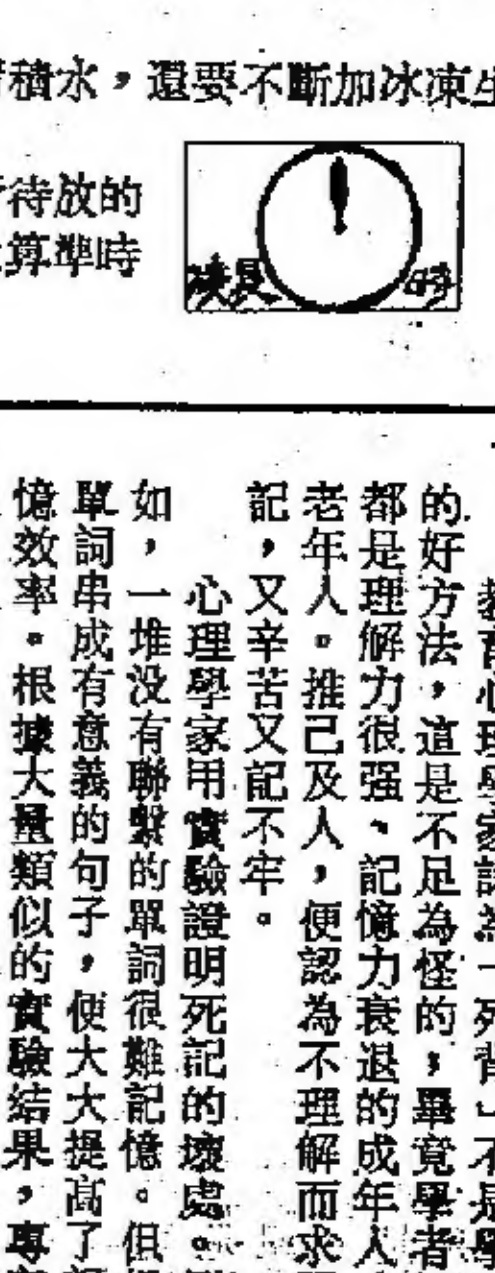 積水，還要不斷加冰凍
待放的
算準時
教育心理學家認為「死背」不是
的好方法，這是不足為怪的，畢竟學者
都是理解力很强、記憶力衰退的成年人
老年人。推己及人，便認為不理解而求
記，又辛苦又記不牢。
心理學家用實驗證明死記的壞處。
如，一堆没有聯繫的單詞很難記憶。但
單詞串成有意義的句子，便大大提高了
憶效率。根據大量類似的實驗結果，專